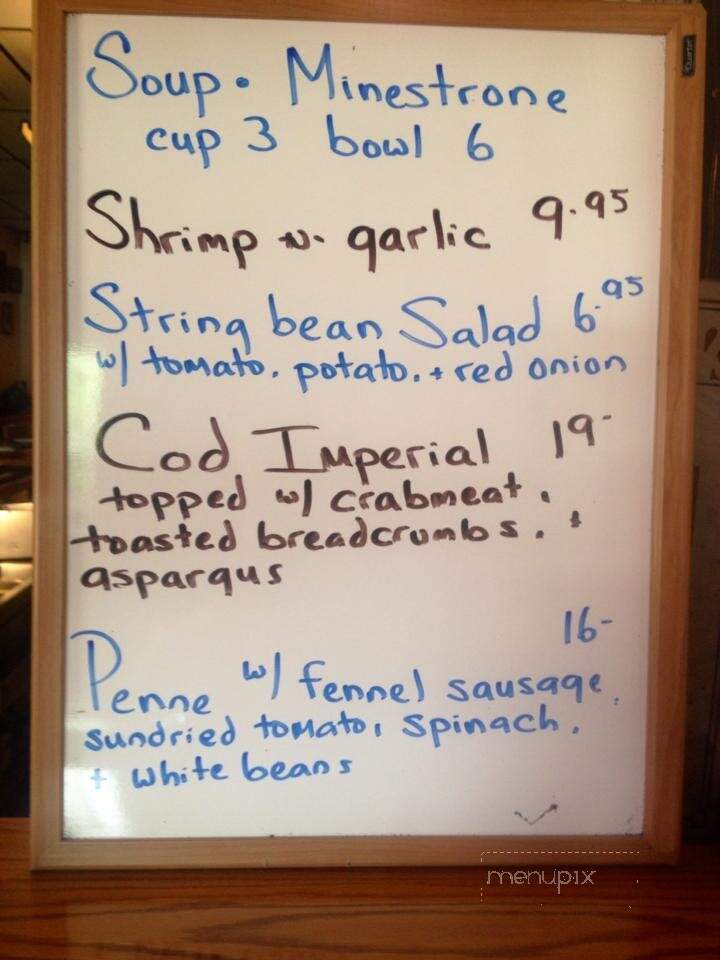 Soup. Minestrone
cup 3 bowl 6
Shrimp n. garlic 9.95
String bean Salad 6.95
w/ tomato, potato, + red onion
Cod Imperial 19-
topped w/ crabmeat,
toasted breadcrumbs, +
asparqus
16-
Penne w/ fennel sausage,
sundried tomato, spinach,
+ white beans
Quartet
menupix